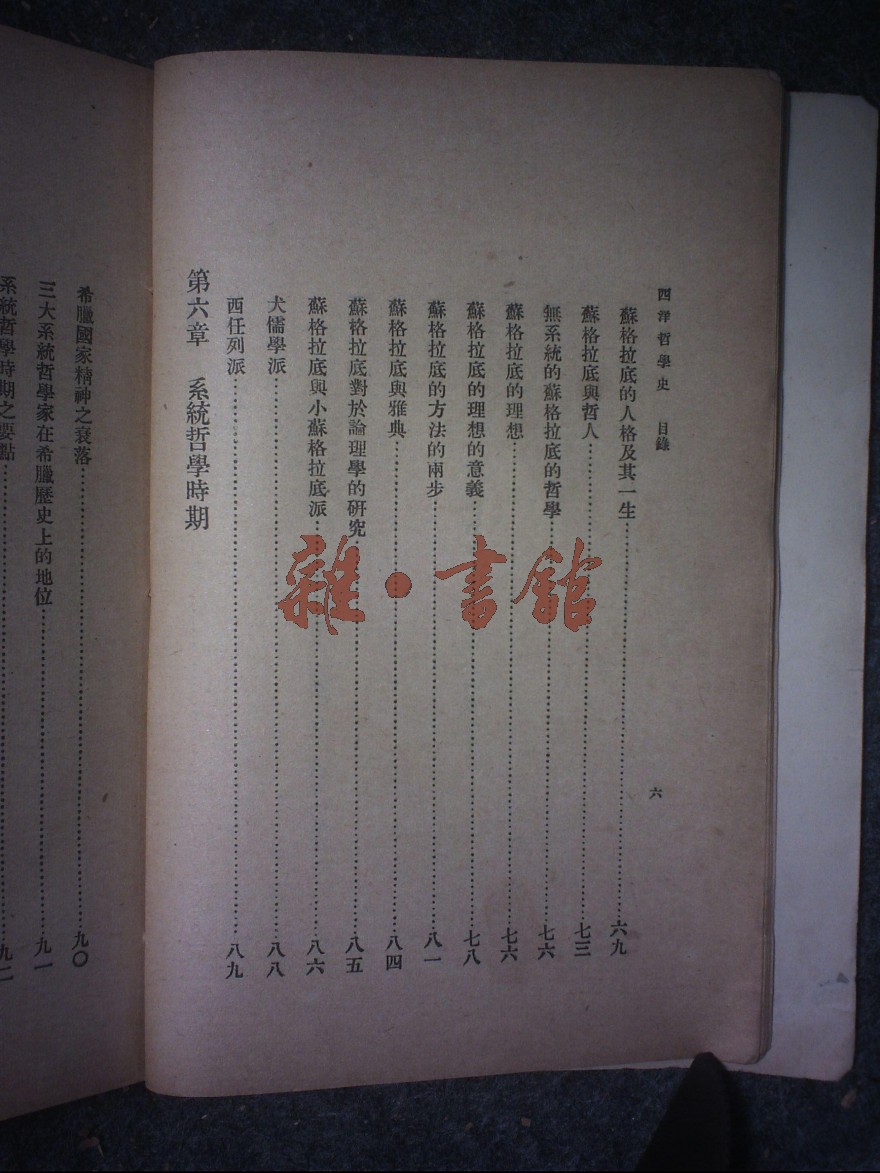 西洋哲學史 目錄 六
蘇格拉底的人格及其一生……六九
蘇格拉底與哲人……七三
無系統的蘇格拉底的哲學……七六
蘇格拉底的理想……七六
蘇格拉底的理想的意義……七八
蘇格拉底的方法的兩步……八一
蘇格拉底與雅典……八四
蘇格拉底對於論理學的研究……八五
蘇格拉底與小蘇格拉底派……八六
犬儒學派……八八
西任列派……八九
第六章 系統哲學時期
希臘國家精神之衰落……九〇
三大系統哲學家在希臘歷史上的地位……九一
系統哲學時期之要點……九二
雜·書館